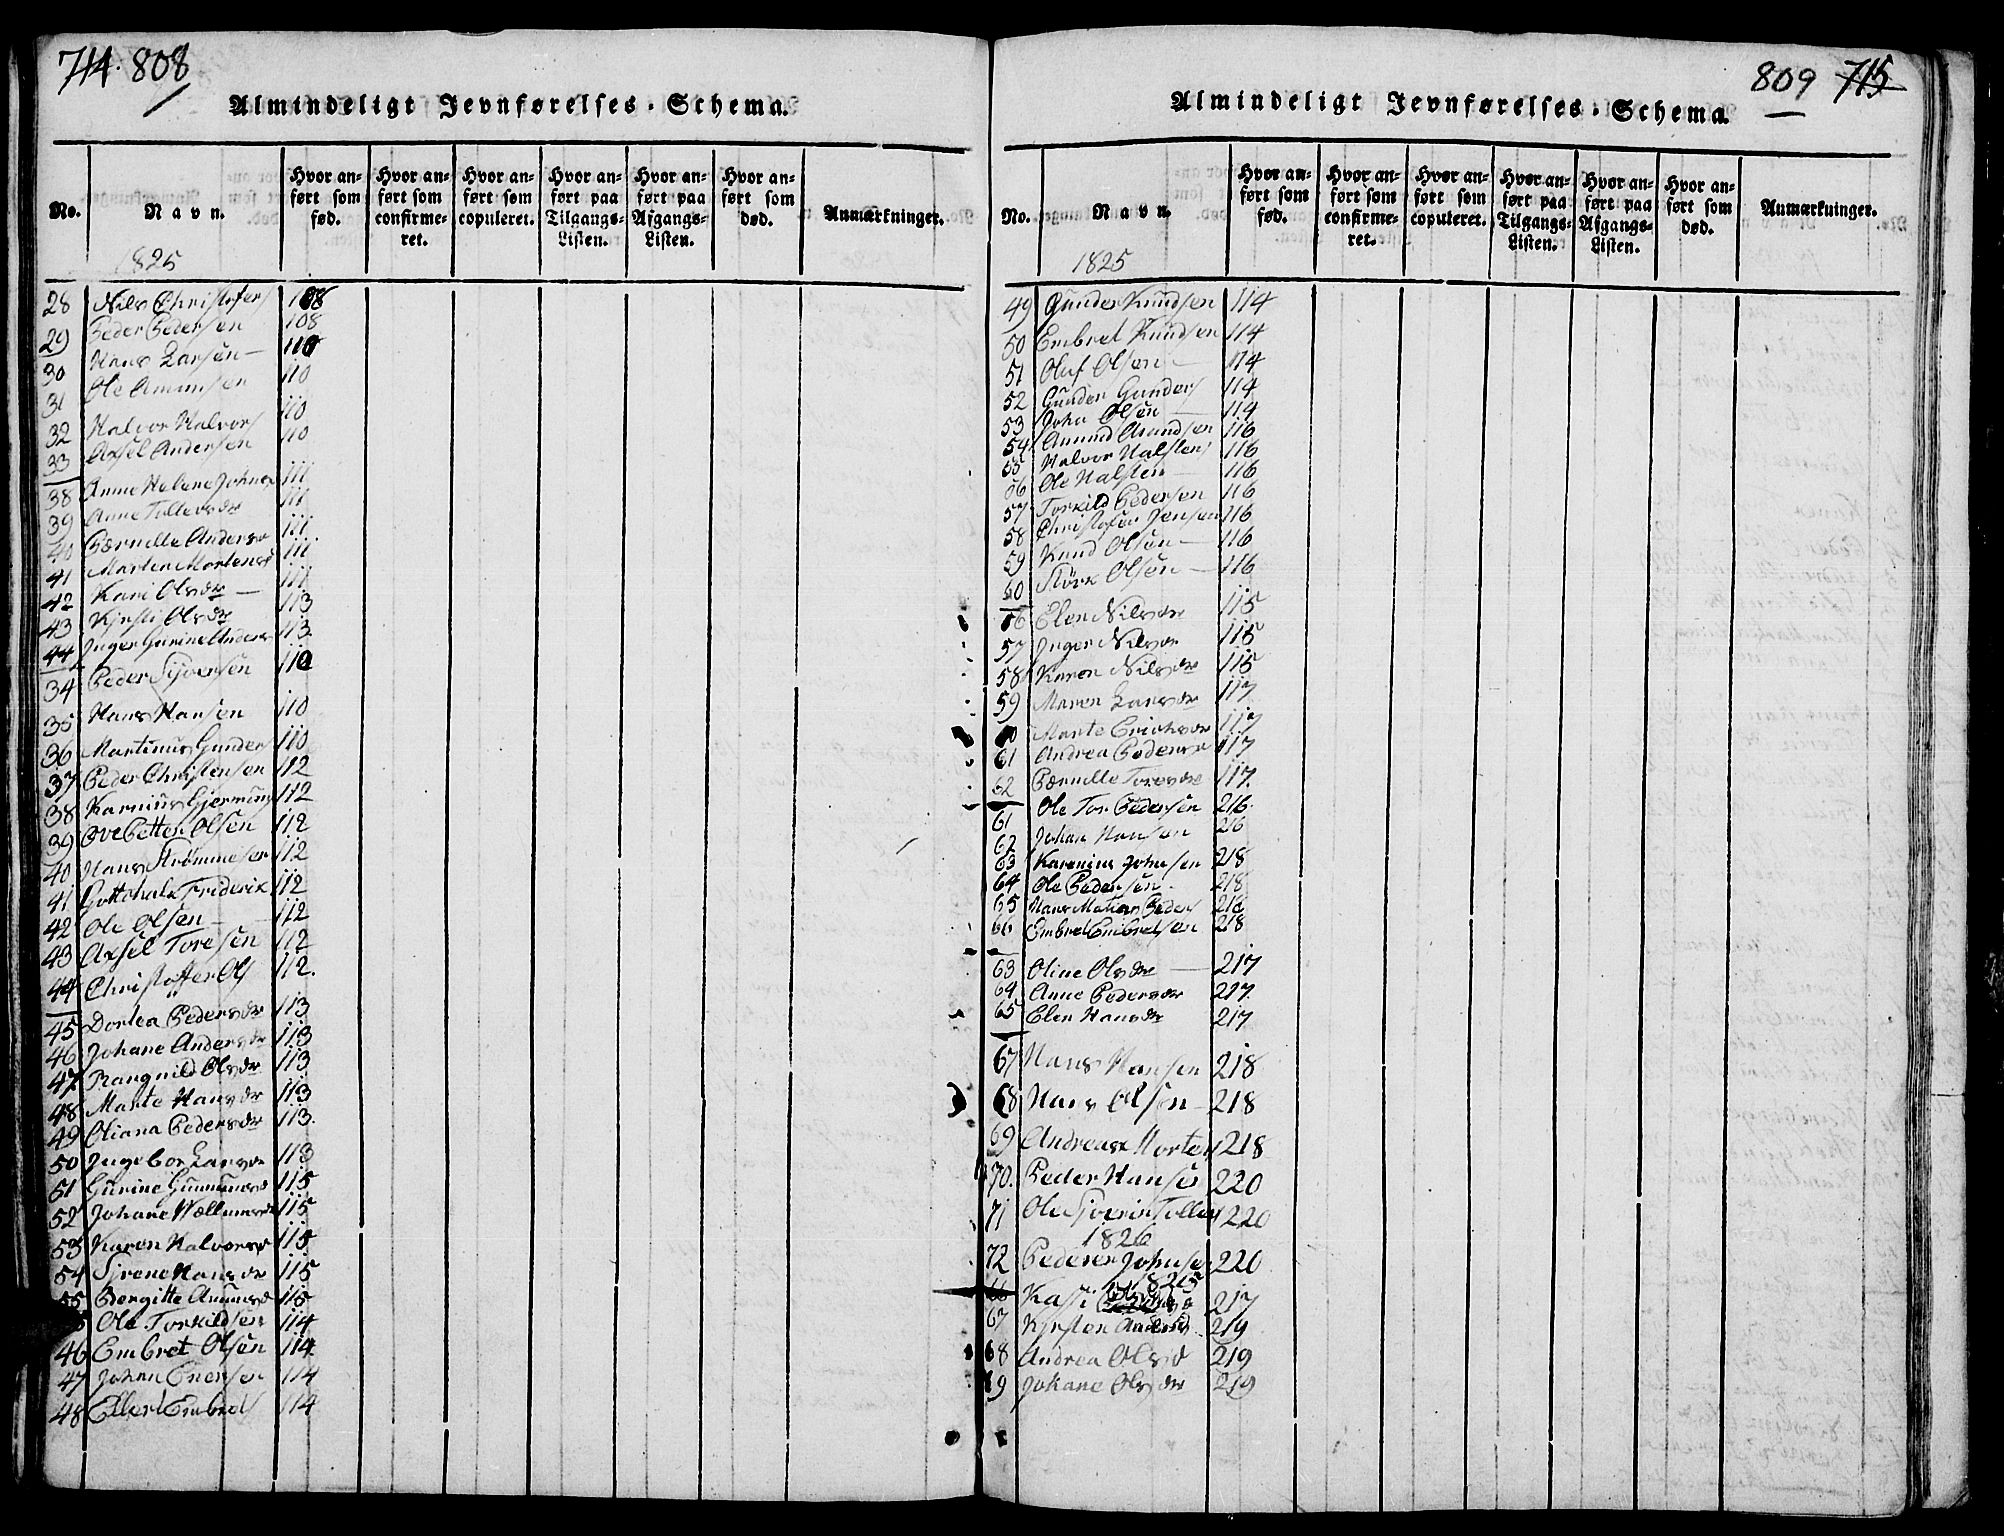 714. 808
Almindeligt Jevnførelses-Schema.
No.
Navn.
Hvor anført som fød.
Hvor anført som confirmeret.
Hvor anført som copuleret.
Hvor anført paa Tilgangs-Listen.
Hvor anført paa Afgangs-Listen.
Hvor anført som død.
Anmærkninger.
1825
28 Nils Christofers 108
29 Peder Pedersen 108
30 Hans Larsen — 110
31 Ole Amunsen 110
32 Halvor Halvors 110
33 Axsel Andersen 110
38 Anne Helene Johns 111
39 Anne Tollevsdr 111
40 Pernille Andersdr 111
41 Marten Mortensd 111
42 Kari Olsdr — 111
43 Kjrsti Olsdr 113
44 Inger Gurine Anders 113
34 Peder Sjversen 110
35 Hans Hansen 110
36 Martinus Gunders 110
37 Peder Christensen 112
38 Karnius Gjermuns 112
39 Ove Petter Olsen 112
40 Hans Strømmesen 112
41 Gottchalk Friderik 112
42 Ole Olsen — 112
43 Axsel Toresen 112
44 Christoffer Ols 112.
45 Dortea Pedersdr 113
46 Johane Andersdr 113
47 Rangnild Olsdr 113
48 Marte Hansdr 113
49 Oliana Pedersdr 113.
50 Ingebor Larsdr 113
51 Gurine Gunmunsd 115
52 Johane Wællumsdr 115
53 Karen Halvorsd 115
54 Sjrene Hansdr 115
55 Bergitte Amunsd 115
Ole Torkildsen 114
46 Embret Olsen 114
47 Johan Enersen 114
48 Ellert Embrets 114
809 715
Almindeligt Jevnførelses-Schema.
No.
Navn.
Hvor anført som fød.
Hvor anført som confirmeret.
Hvor anført som copuleret.
Hvor anført paa Tilgangs-Listen.
Hvor anført paa Afgangs-Listen.
Hvor anført som død.
Anmærkninger.
1825
49 Gunder Knudsen 114
50 Embret Knudsen 114
51 Oluf Olsen — 114
52 Gunder Gunders 114
53 John Olsen — 114
54 Amund Amundsen 116
55 Halvor Halstens 116
56 Ole Halsten — 116
57 Torkild Pedersen 116
58 Christofer Jensen 116
59 Knud Olsen — 116
60 Størk Olsen — 116
56 Elen Nilsdr 115
57 Inger Nilsdr 115
58 Karen Nilsdr 115
59 Maren Larsdr 117
60 Marte Erichsdr 117
61 Andrea Pedersdr 117
62 Pernille Toresdr 117.
61 Ole Tor Pedersen 216.
62 Johan Hansen 216
63 Karenius Johnsen 218
64 Ole Pedersen. 218
65 Hans Matias Peders 218
66 Embret Embretsen 218
63 Oline Olsdr — 217
64 Anne Pedersdr 217.
65 Elen Hansdr 217
67 Hans Hansen 218
68 Hans Olsen — 218
69 Andreas Morten 218
70. Peder Hansen 220
71 Ole Sjverin Tollevs 220
1826
72 Pederer Johnsen 220
1825
66 Kasti 217
67 Kjrsten Andersd 219
68 Andrea Olsd 219
69 Johane Olsdr 219